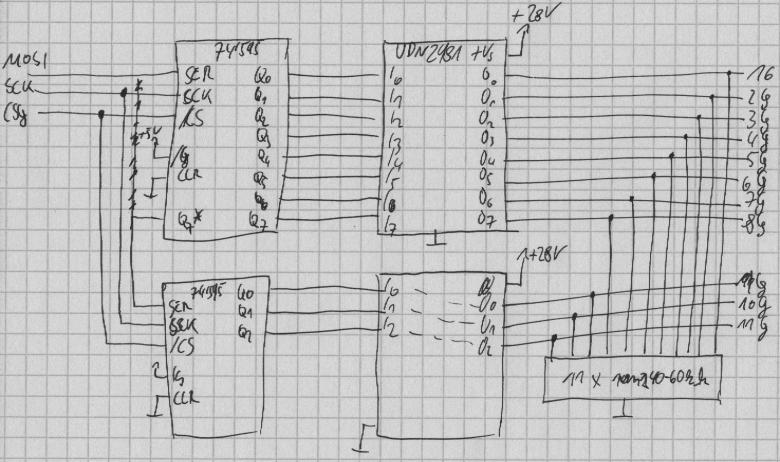 +28V
74HC595
UDN2981 +Vs
MOSI
SER Q0 I0 O0 1G
SCK
SCK Q1 I1 O1 2G
CSg
/CS Q2 I2 O2 3G
+5V
Q3 I3 O3 4G
/G Q4 I4 O4 5G
CLR Q5 I5 O5 6G
Q6 I6 O6 7G
Q7* Q7 I7 O7 8G
+28V
74HC595 Q0 I0
SER Q1 I1 O0 9G
SCK Q2 I2 O1 10G
/CS O2 11G
G
CLR
11 x